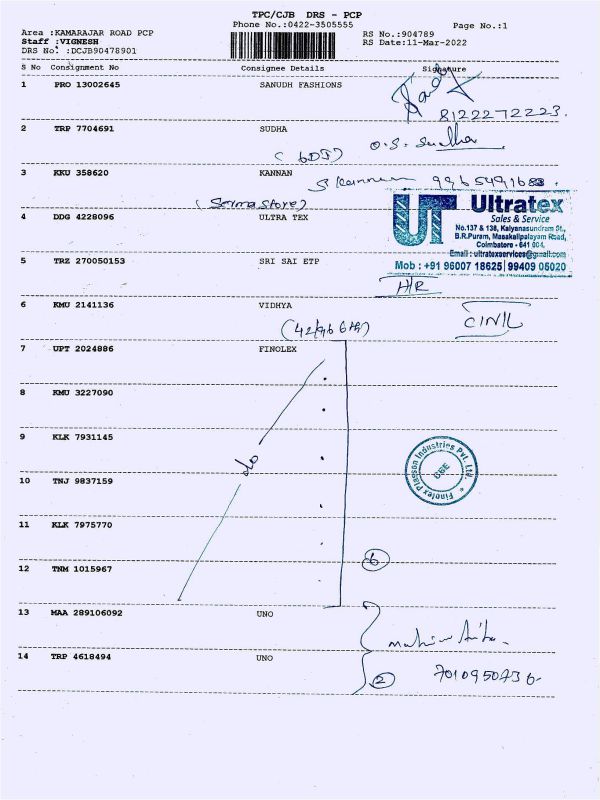 TPC/CJB DRS - PCP
Phone No.:0422-3505555
Page No.:1
Area :KAMARAJAR ROAD PCP
Staff :VIGNESH
DRS No. :DCJB90478901
RS No.:904789
RS Date:11-Mar-2022
S No Consignment No Consignee Details Signature
1 PRO 13002645 SANUDH FASHIONS
8122272223.
2 TRP 7704691 SUDHA
O.S. Sudha
3 KKU 358620 KANNAN
S Kannan 9965491683
4 DDG 4228096 ULTRA TEX
UT Ultratex
Sales & Service
No.137 & 138, Kalyanasundram St.,
B.R.Puram, Masakalipalayam Road,
Coimbatore - 641 004.
Email : ultratexservices@gmail.com
Mob : +91 96007 18625 | 99409 05020
5 TRZ 270050153 SRI SAI ETP
H/R
6 KMU 2141136 VIDHYA
7 UPT 2024886 FINOLEX
8 KMU 3227090
9 KLK 7931145
do
Finolex Plasson Industries Pvt. Ltd.
CBE
10 TNJ 9837159
11 KLK 7975770
12 TNM 1015967
6
13 MAA 289106092 UNO
14 TRP 4618494 UNO
2